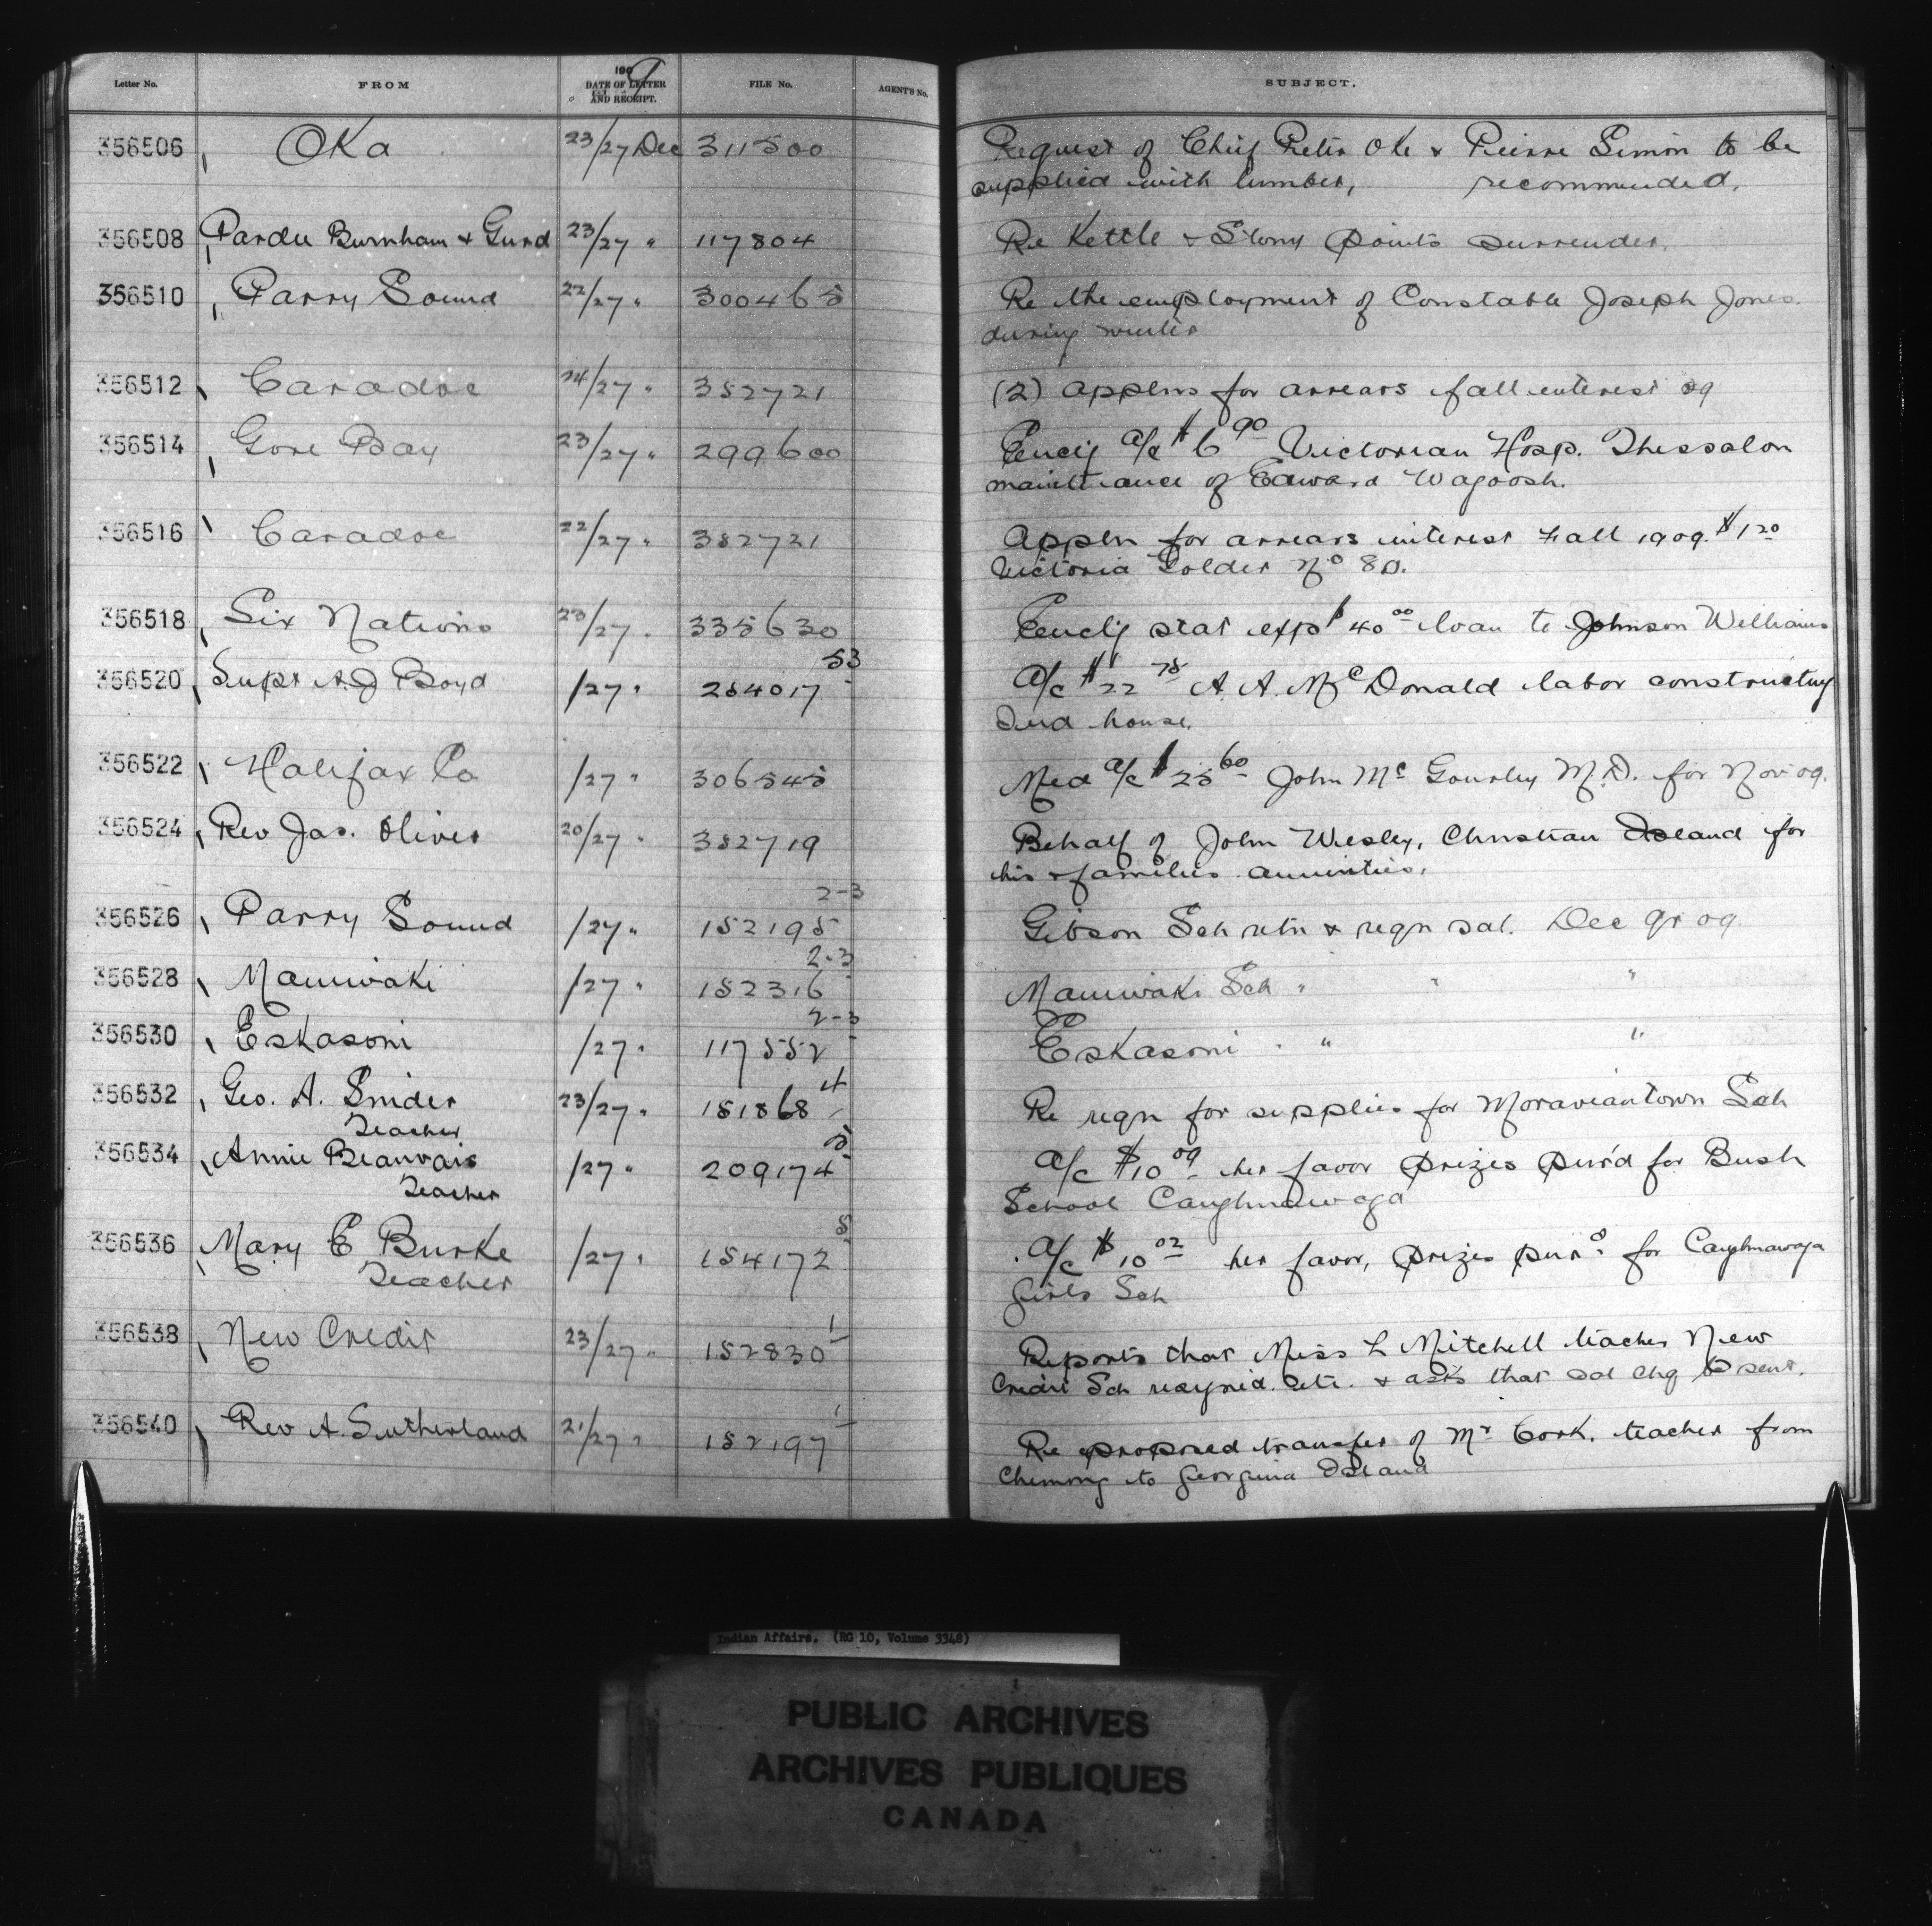 Letter No. FROM 1909 DATE OF LETTER AND RECEIPT. FILE No. AGENT'S No. SUBJECT.
356506 Oka 23/27 Dec 311500 Request of Chief Peter Oke & Pierre Simon to be
supplied with lumber, recommended.
356508 Pardee Burnham & Gurd 23/27 " 117804 Re Kettle & Stony Points surrender.
356510 Parry Sound 22/27 " 300465 Re the employment of Constable Joseph Jones
during winter
356512 Caradoc 24/27 " 352721 (2) Applns for arrears fall interest 09
356514 Gore Bay 23/27 " 299600 Enclg a/c $6.90 Victorian Hosp. Thessalon
maintenance of Edward Wagoosh.
356516 Caradoc 22/27 " 352721 Appln for arrears interest Fall 1909. $1.20
Victoria Dolder No 80.
356518 Six Nations 23/27 " 335630 Enclg stat expd $40.00 loan to Johnson Williams
356520 Supt A.J Boyd /27 " 254017 53 A/c $22.75 A. A. McDonald labor constructing
Ind house.
356522 Halifax Co /27 " 306545 Med a/c $25.60 John Mc Gourley M.D. for Nov 09.
356524 Rev Jas. Oliver 20/27 " 352719 Behalf of John Wesley, Christian Island for
his & families annuities.
356526 Parry Sound /27 " 152195 2-3 Gibson Sch retn & reqn sal. Dec qr 09
356528 Maniwaki /27 " 152316 2-3 Maniwaki Sch " " "
356530 Eskasoni /27 " 117552 2-3 Eskasoni " " "
356532 Geo. A. Snider 23/27 " 151868 4 Re reqn for supplies for Moraviantown Sch
Teacher
356534 Annie Beauvais /27 " 209174 5 A/c $10.09 her favor prizes pur'd for Bush
Teacher School Caughnawaga
356536 Mary E Burke /27 " 154172 5 A/c $10.02 her favor, prizes purd for Caughnawaga
Teacher Girls Sch
356538 New Credit 23/27 " 152830 1 Reports that Miss L Mitchell teacher New
Credit Sch resigned etc. & asks that sal chq be sent.
356540 Rev A. Sutherland 21/27 " 152197 1 Re proposed transfer of Mr Cork, teacher from
Chemong to Georgina Island
Indian Affairs. (RG 10, Volume 3348)
PUBLIC ARCHIVES
ARCHIVES PUBLIQUES
CANADA